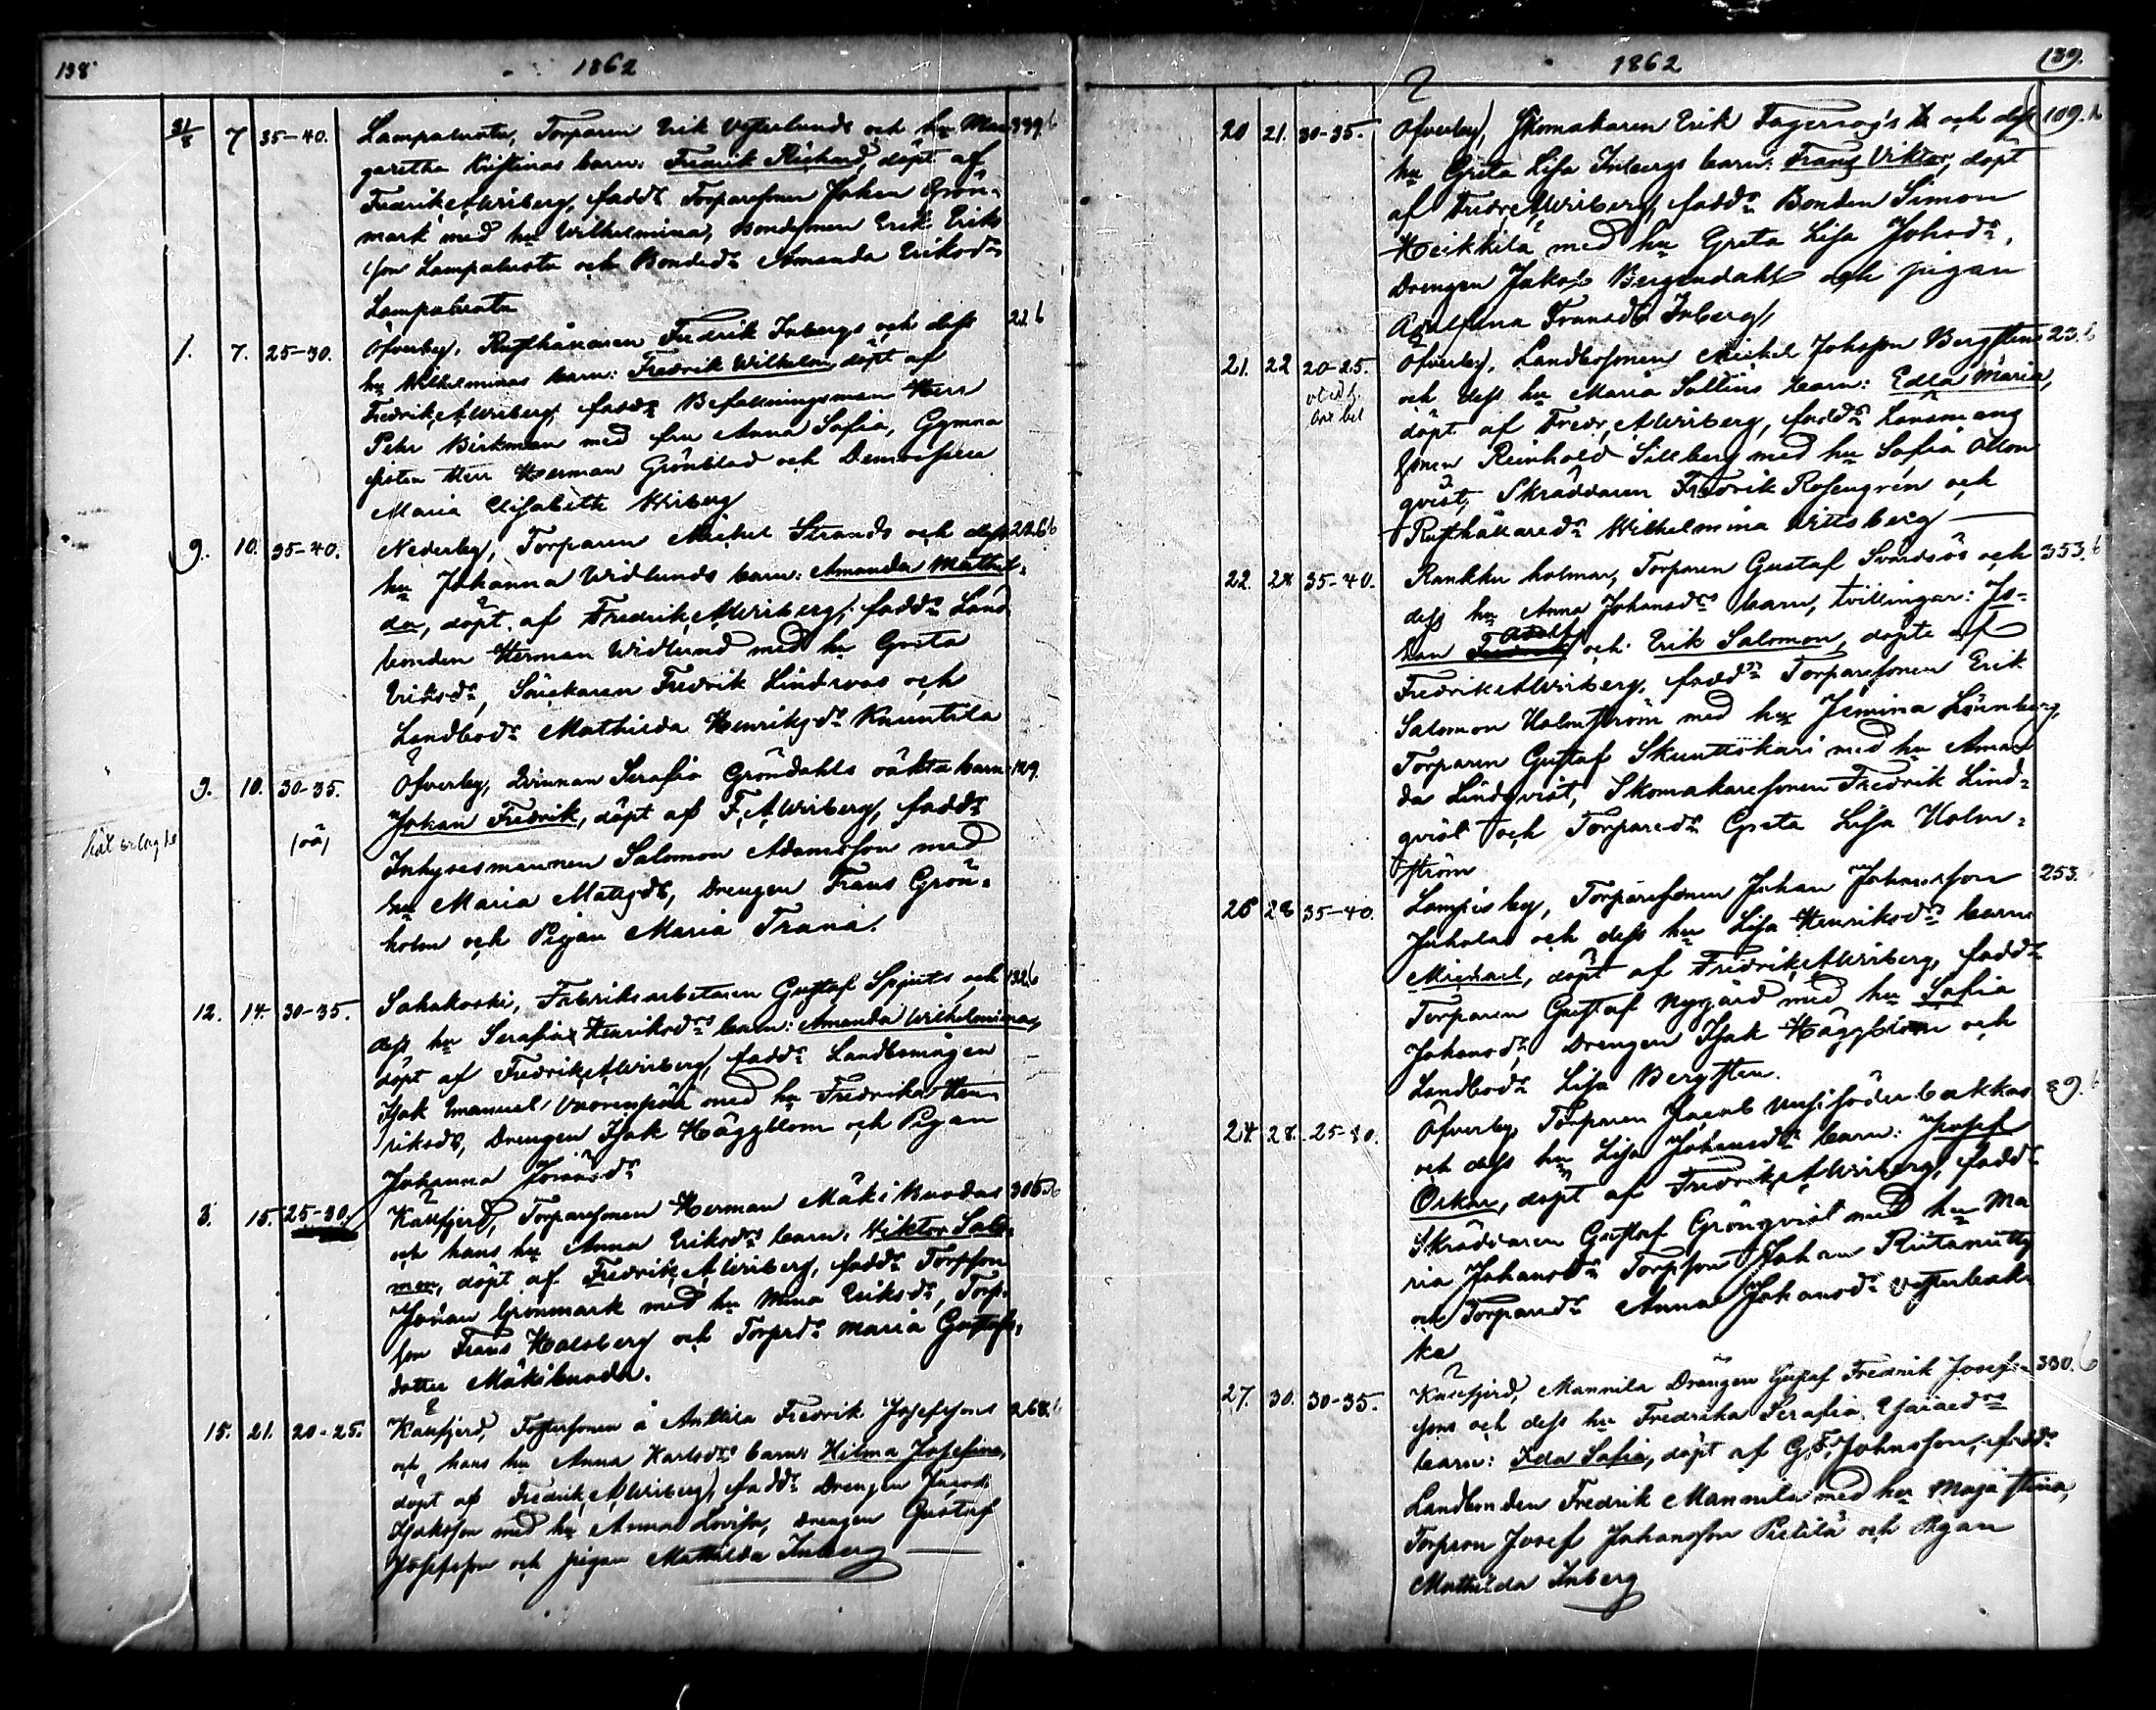 138
1862
31/8 7 35-40. Lampaluoto, Torparen Erik Vesterlunds och hu Mar 339.b
garetha Kristinas barn: Fredrik Richard, döpt af
Fredrik A Wriberg, fadd: Torparesonen Johan Grön-
mark med hu Wilhelmina, Bondesonen Erik Eriks
son Lampaluoto och Bonded: Amanda Eriksdr
Lampaluoto
1. 7. 25-30. Öfverby, Rusthållaren Fredrik Inbergs och dess 22 b
hu Wilhelminas barn: Fredrik Wilhelm, döpt af
Fredrik A Wriberg, fadd: Befallningsman Herr
Pehr Birkman med fru Anna Sofia, Gymna
sisten Herr Herman Grönblad och Demoiselle
Maria Elisabeth Wriberg
9. 10. 35-40. Nederby, Torparen Michel Strands och dess 226 b
hu Johanna Widlunds barn: Amanda Mathil-
da, döpt af Fredrik A Wriberg, fadd: Land
bonden Herman Widlund med hu Greta
Eriksdr, Snickaren Fredrik Lindroos och
Landbodr Mathilda Henriksdr Knuutila
9. 10. 30-35. Öfverby, Qvinnan Serafia Gröndahls oäkta barn 129.
Johan Fredrik, döpt af F. A Wriberg, fadd:
/oä/
Inhysesmannen Salomon Adamsson med
hu Maria Matsdr, Drengen Frans Grön-
holm och Pigan Maria Trana.
12. 14. 30-35. Sahakoski, Fabriksarbetaren Gustaf Spjuts och 132 b
dess hu Serafia Henriksdrs barn: Amanda Wilhelmina,
döpt af Fredrik A Wriberg, fadd: Landbomågen
Isak Emanuel Vuorenpää med hu Fredrika Hen
riksdr, Drengen Isak Häggblom och Pigan
Johanna
3. 15. 25-30. Kallfjerd, Torparesonen Herman Mäkikuodas 305 b
och hans hu Anna Eriksdrs barn: Viktor Salo-
mon, döpt af Fredrik A Wriberg, fadd: Torpson
Johan Grönmark med hu Mina Eriksdr, Torp-
son Frans Halsberg och Torpdr Maria Gustafs-
dotter
15. 21. 20-25. Kallfjerd, Fostersonen å Anttila Fredrik Josefssons 268.b
och hans hu Anna Karlsdrs barn: Hilma Josefina,
döpt af Fredrik A Wriberg, fadd: Drengen Jacob
Isaksson med hu Anna Lovisa, Drengen Gustaf
Josefsson och pigan Mathilda Inberg
1862
139.
20 21. 30-35. Öfverby, Skomakaren Erik Fagersög's och dess 109.b
hu Greta Lisa Inbergs barn: Frans Viktor, döpt
af Fredr. A Wriberg, fadd: Bonden Simon
Heikkilä med hu Greta Lisa Johsdr,
Drengen Jakob Bergendahl och pigan
Adelfina Fransdr Inberg,
21. 22 20-25. Öfverby, Landbosonen Michel Johsson Bergstens 23.b
och dess hu Maria Salléns barn: Edla Maria,
döpt af Fredr. A Wriberg, fadd: Länsmans
sonen Reinhold Sillberg med hu Sofia Malm
qvist, Skräddaren Fredrik Rosengrén och
Rusthållaredr Wilhelmina Wittsberg
22. 24 35-40. Rankku holmar, Torparen Gustaf Svärdsös och 353.b
dess hu Anna Johansdrs barn, tvillingar: Jo-
han Adolf och Erik Salomon, döpte af
Fredrik A Wriberg, fadd: Torparesonen Erik
Salomon Holmström med hu Jemina Lönnberg,
Torparen Gustaf Skuuttskari med hu Aman
da Lindqvist, Skomakaresonen Fredrik Lind-
qvist och Torparedr Greta Lisa Holm-
ström
25 28 35-40. Lampis by, Torparesonen Johan Johansson 253.
Juhola och dess hu Lisa Henriksdrs barn
Michael, döpt af Fredrik A Wriberg, fadd:
Torparen Gustaf Nygård med hu Sofia
Johansdr, Drengen Isak Häggblom och
Landbodr Lisa Bergsten.
24. 28. 25-30. Öfverby, Torparen Jacob 89.b
och dess hu Lisa Johansdrs barn: Josef
Oskar, döpt af Fredrik A Wriberg, fadd:
Skräddaren Gustaf Grönqvist med hu Ma
ria Johansdr, Torpson Johan Riitanutty
och Torparedr Anna Johansdr Vesterbak-
ka
27. 30. 30-35. Kallfjerd, Mannila Drängen Gustaf Fredrik Josefs- 330.b
sons och dess hu Fredrika Serafia Esaiaedrs
barn: Ida Sofia, döpt af G. F. Johnsson, fadd:
Landbonden Fredrik Mannila med hu Maja Stina,
Torpson Josef Johansson Pietilä och Pigan
Mathilda Inberg